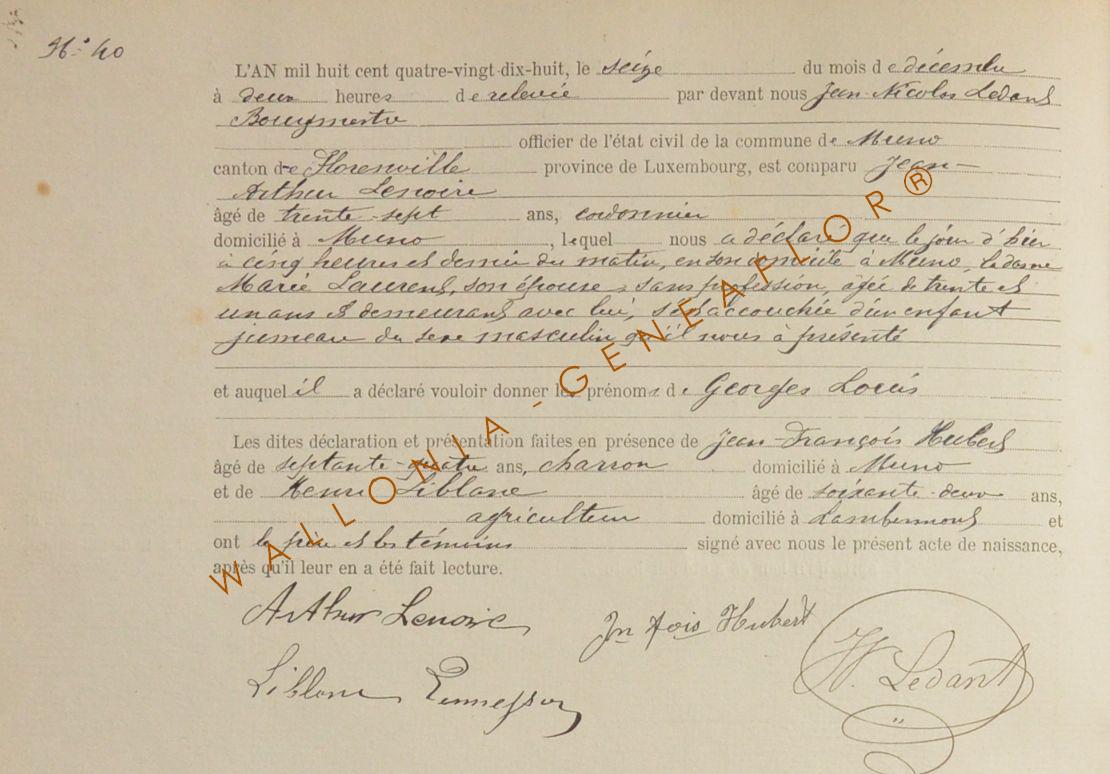 N° 40
L'AN mil huit cent quatre-vingt-dix-huit, le seize du mois de décembre
à deux heures de relevée par devant nous Jean-Nicolas Ledant
Bourgmestre
officier de l'état civil de la commune de Muno
canton de Florenville province de Luxembourg, est comparu Jean-
Arthur Lenoire
âgé de trente-sept ans, cordonnier
domicilié à Muno, lequel nous a déclaré que le jour d'hier
à cinq heures et demie du matin, en son domicile à Muno, la dame
Marie Laurent, son épouse, sans profession, âgée de trente et
un ans et demeurant avec lui, s'est accouchée d'un enfant
jumeau du sexe masculin qu'il nous à présenté
et auquel il a déclaré vouloir donner les prénoms de Georges Louis
Les dites déclaration et présentation faites en présence de Jean-François Hubert
âgé de septante-quatre ans, charron domicilié à Muno
et de Henri Liblanc âgé de soixante-deux ans,
agriculteur domicilié à Lambermont et
ont le père et les témoins signé avec nous le présent acte de naissance,
après qu'il leur en a été fait lecture.
Arthur Lenoire Jn fois Hubert
Liblanc
Ledant
WALLONIA-GENEAFLOR®